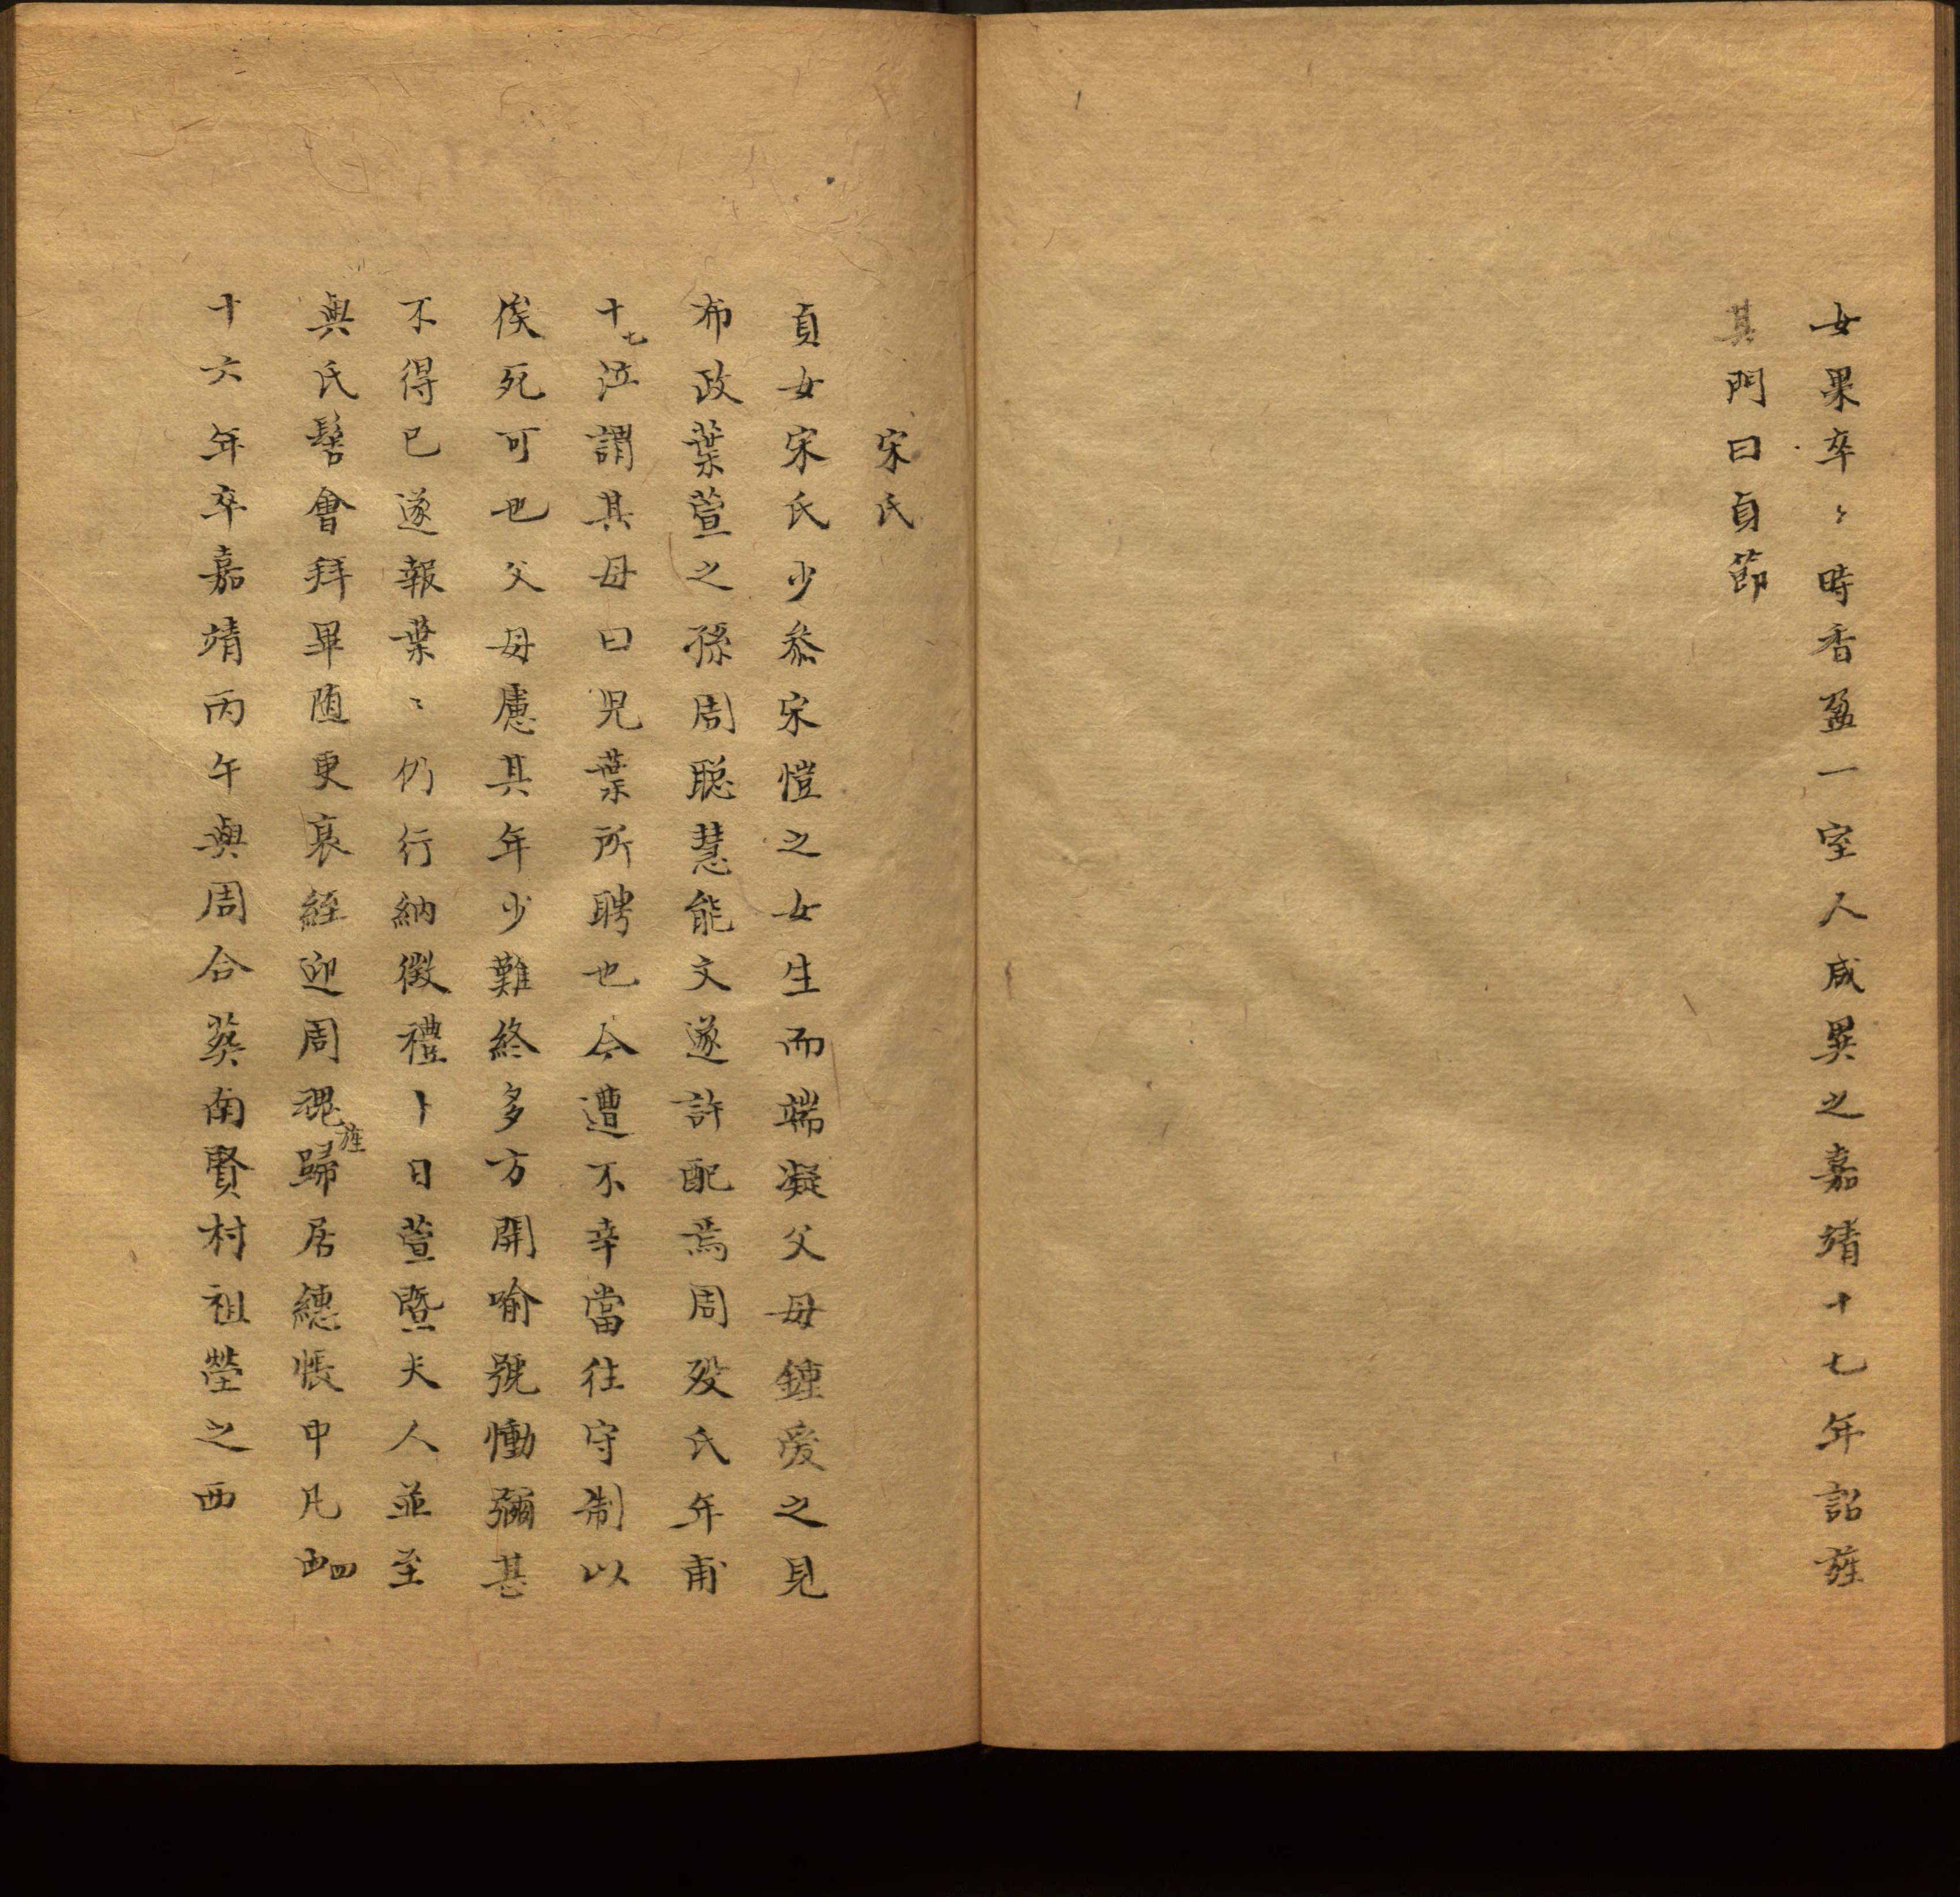 女果卒〻時香盈一室人咸異之嘉靖十七年詔旌
其門曰貞節
宋氏
貞女宋氏少叅宋愷之女生而端凝父母鍾愛之見
布政葉萱之孫周聡慧能文遂許配焉周殁氏年甫
十七泣謂其母曰児葉所聘也今遭不幸當往守制以
俟死可也父母慮其年少難終多方開喻號慟彌甚
不得已遂報葉〻仍行納徵禮卜日萱暨夫人並至
與氏髻會拜畢随更衰絰迎周䰟旌歸居繐帳中凡四
十六年卒嘉靖丙午與周合葬南賢村祖塋之西